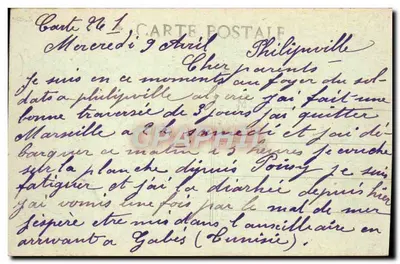 Carte No 1
CARTE POSTALE
Mercredi 9 Avril Philipville
Cher parents
Je suis en ce moments au foyer du sol-
dats a philipville algerie j'ai fait une
bonne traversée de 3 jours j'ai quitter
Marseille a samedi et j'ai dé-
barquer ce matin a 5 heures je couche
sur la planche depuis Poissy je suis
fatiguer et j'ai la diarhée depuis hier
j'ai vomis une fois par le mal de mer
j'espère etre mis dans l'auxiliaire en
arrivant a Gabès (Tunisie).